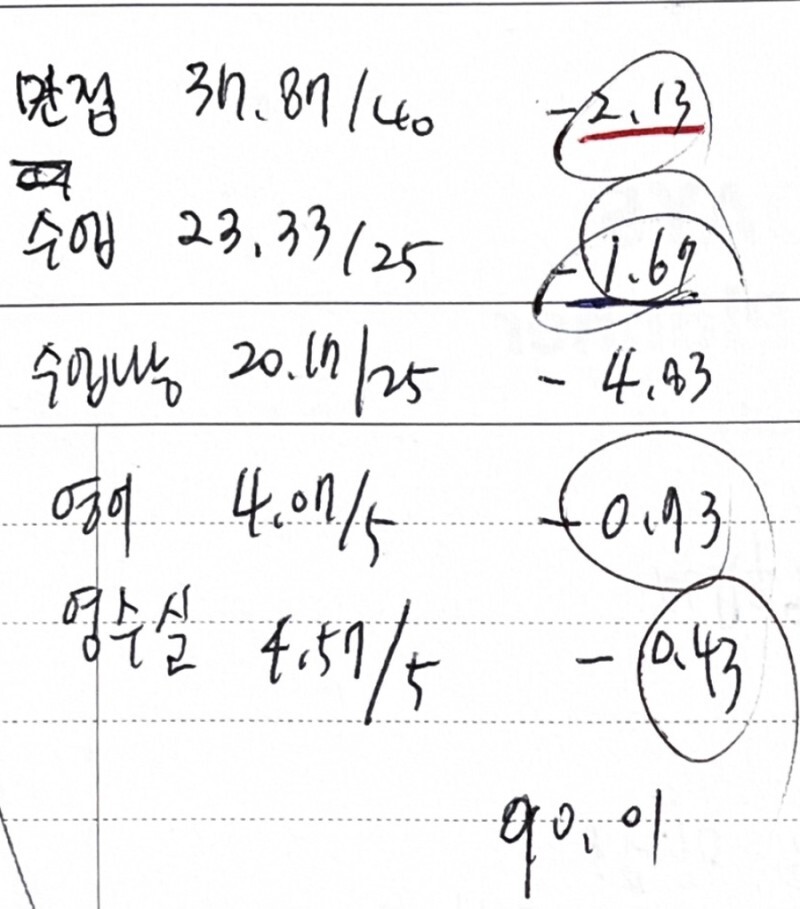 면접 37.87/40 -2.13
수업 23.33/25 -1.67
수업나눔 20.17/25 - 4.83
영어 4.07/5 - 0.93
영수실 4.57/5 - 0.43
90.01